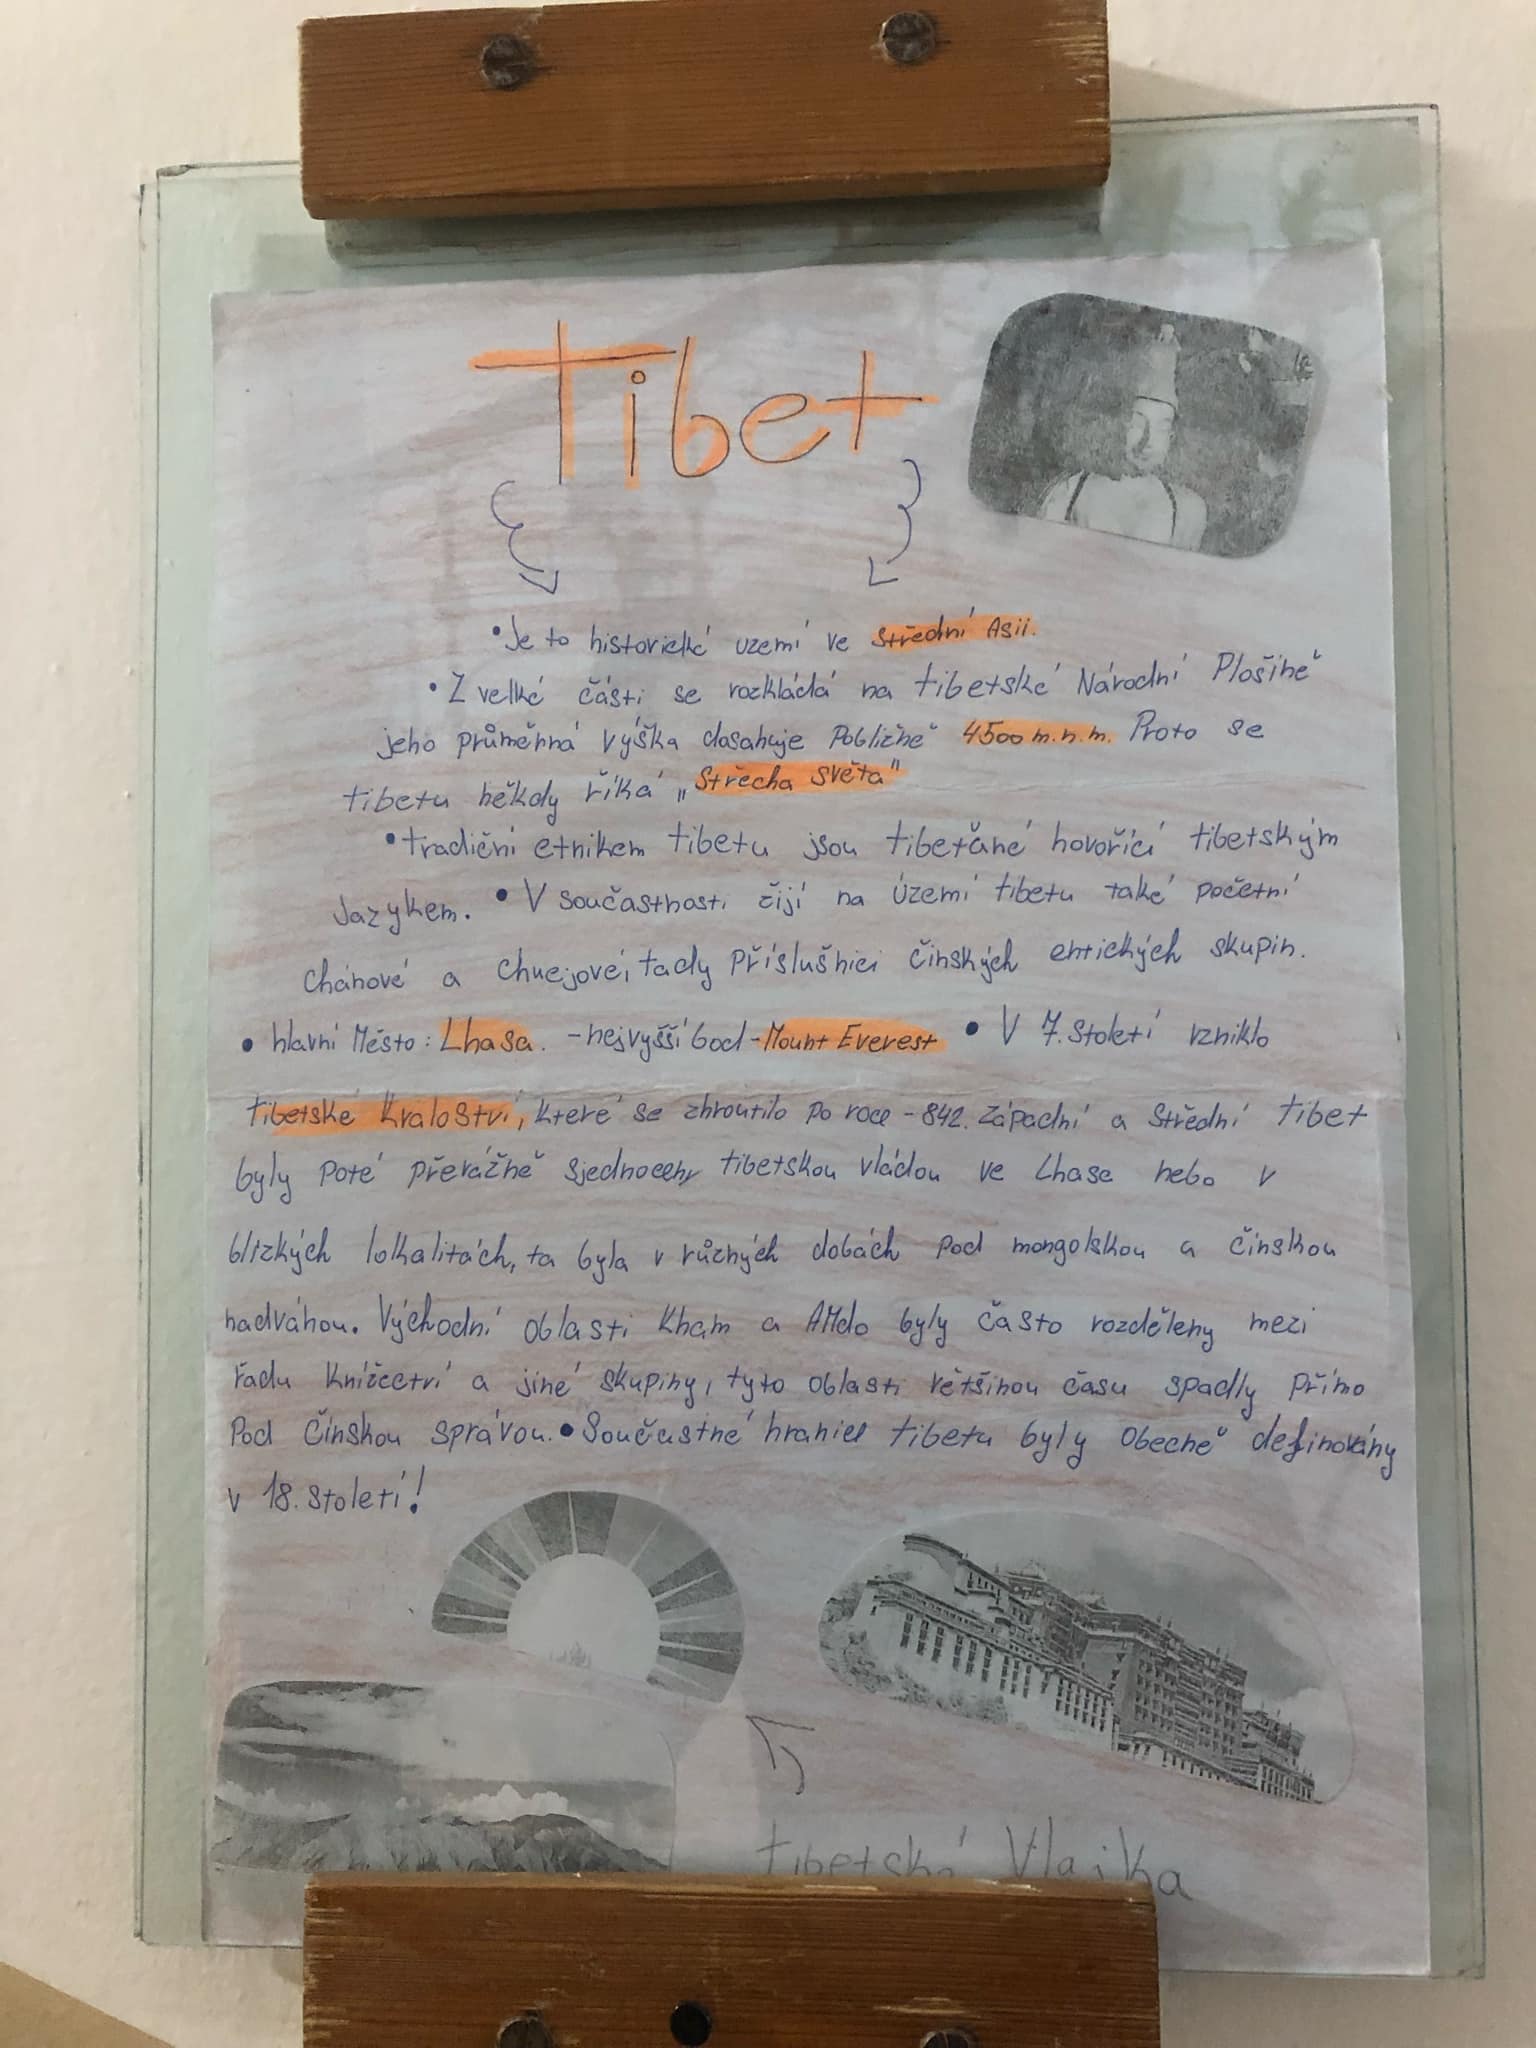 Tibet
•Je to historické uzemí ve Střední Asii.
•Z velké části se rozkládá na tibetské Národní Plošině
jeho průměrná výška dosahuje Pobližně 4500 m.n.m. Proto se
tibetu někdy říká „Střecha světa"
•tradiční etnikem tibetu jsou tibeťané hovořící tibetským
Jazykem. • V součastnosti žijí na území tibetu také početní
Chánové a Chuejové, tady Příslušníci čínských entických skupin.
• hlavní Město: Lhasa. -nejvyšší bod-Mount Everest • V 7. Století vzniklo
tibetské Kraloství, které se zhroutilo po roce - 842. Západní a Střední tibet
byly Poté převážně sjednoceny tibetskou vládou ve Lhase nebo v
blízkých lokalitách, ta byla v různých dobách Pod mongolskou a čínskou
nadváhou. Východní oblasti Kham a AMdo byly často rozděleny mezi
řadu Knížectví a jiné skupiny, tyto oblasti většinou času spadly přímo
Pod Čínskou správou. • Součastné hranice tibetu byly Obecně definovány
v 18. Století!
tibetská Vlajka